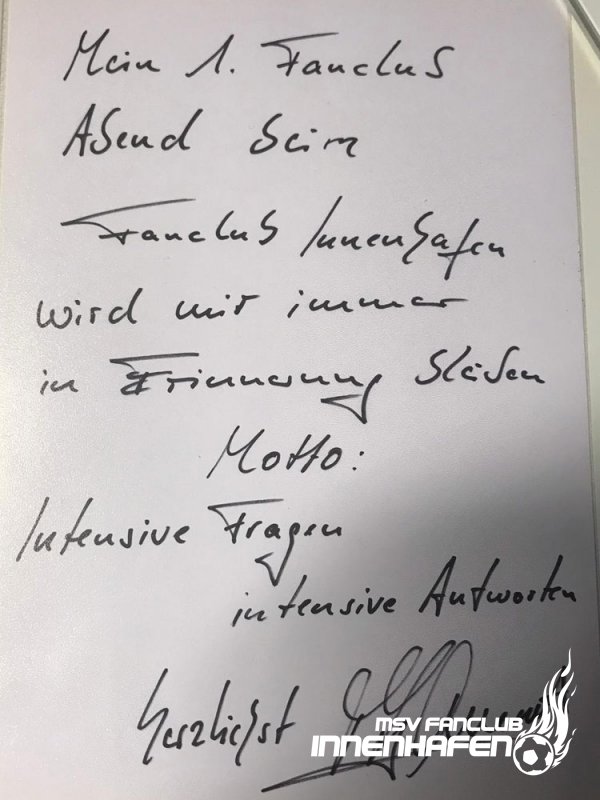 Mein 1. Fanclub
Abend beim
Fanclub Innenhafen
wird mir immer
in Erinnerung bleiben
Motto:
Intensive Fragen
intensive Antworten
Herzlichst
MSV FANCLUB
INNENHAFEN